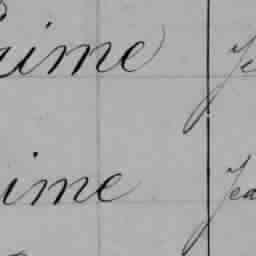 aime Je
ime Jea